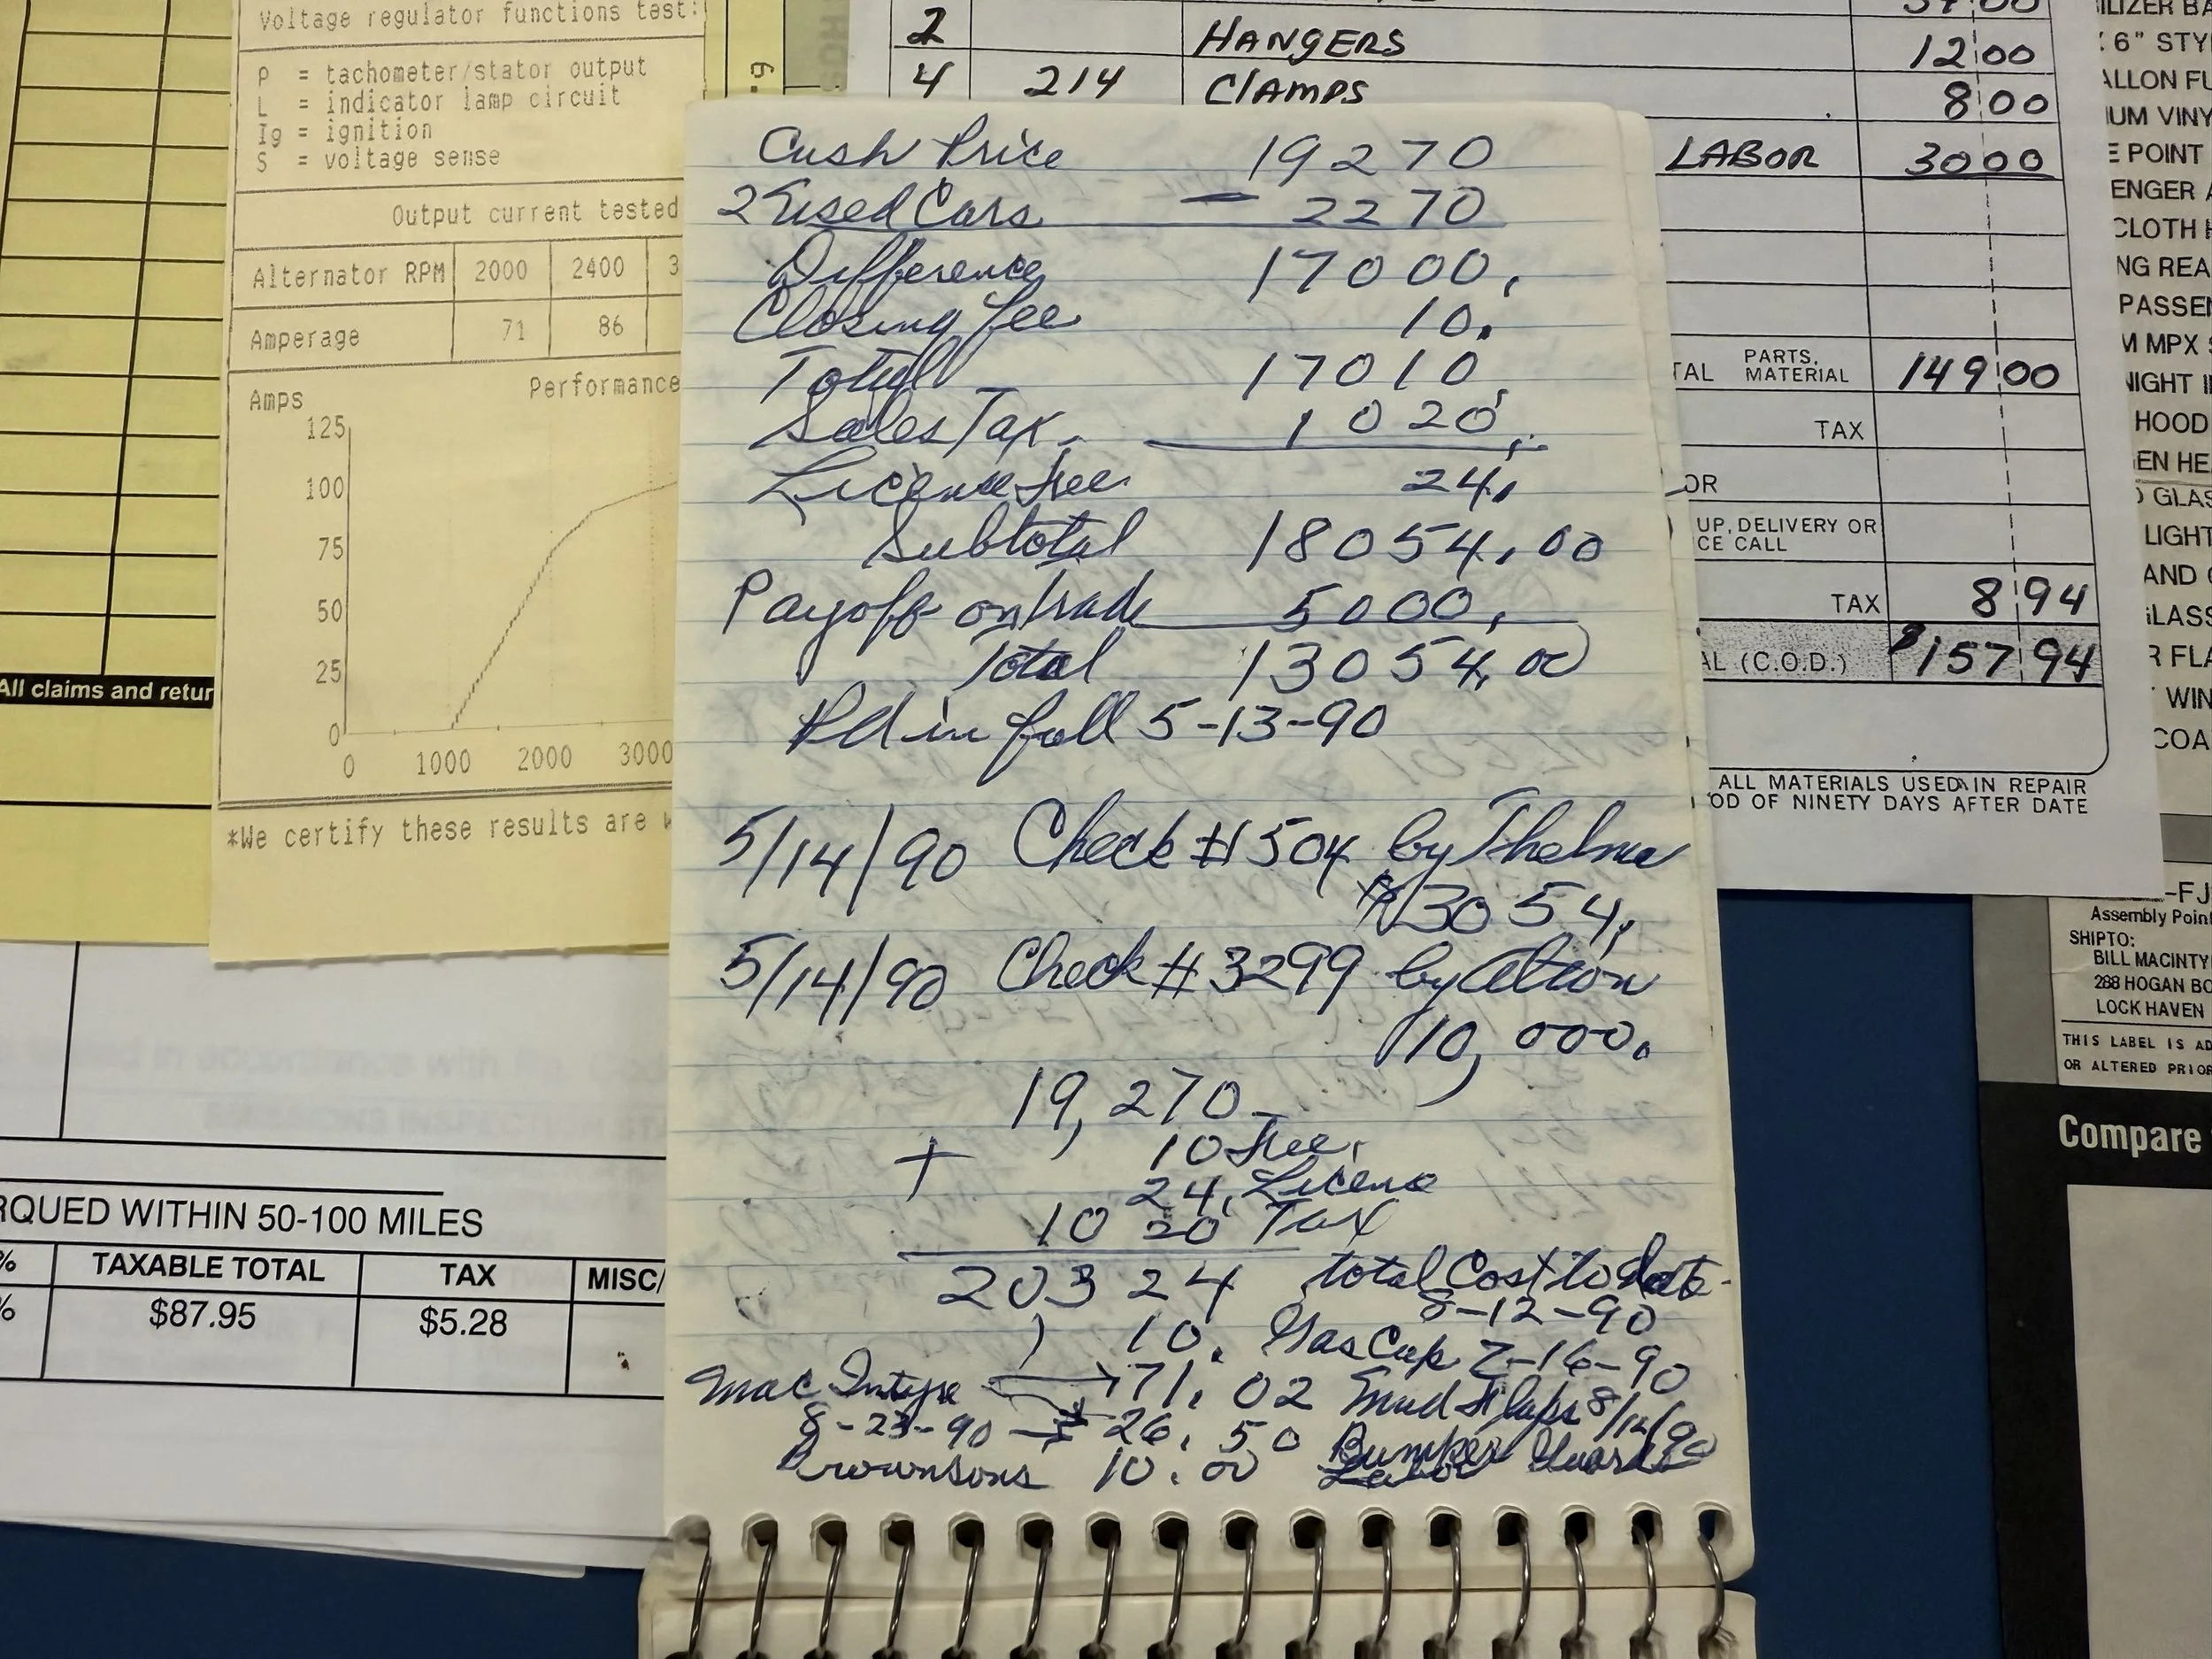 Voltage regulator functions test:
P = tachometer/stator output
L = indicator lamp circuit
Ig = ignition
S = voltage sense
Output current tested
Alternator RPM 2000 2400 3
Amperage 71 86
Amps Performance
125
100
75
50
25
0
0 1000 2000 3000
*We certify these results are
All claims and retur
RQUED WITHIN 50-100 MILES
% TAXABLE TOTAL TAX MISC/
% $87.95 $5.28
2 HANGERS 12 00
4 214 ClAMPS 8 00
LABOR 30 00
TAL PARTS, MATERIAL 149 00
TAX
OR
UP, DELIVERY OR
CE CALL
TAX 8 94
AL (C.O.D.) $157 94
ALL MATERIALS USED IN REPAIR
OD OF NINETY DAYS AFTER DATE
Cash Price 19270
2 Used Cars - 2270
Difference 17000,
Closing fee 10.
Total 17010
Sales Tax 1020,
License Fee 24,
Subtotal 18054,00
Payoff on trade 5000,
Total 13054,00
Pd in full 5-13-90
5/14/90 Check #1504 by Thelma
3054,
5/14/90 Check #3299 by
10,000.
19,270
+ 10 Fee,
24, License
1020 Tax
20324 total Cost to date
8-12-90
10. Gas Cap 7-16-90
Mac Intyre 71.02 Mud Flaps 8/12/90
8-23-90 26.50 Bumper Guards
Brownsons 10.00 Labor
ILIZER BA
6" STY
ALLON FU
IUM VINY
E POINT
ENGER A
CLOTH H
NG REA
PASSEN
M MPX S
NIGHT I
HOOD
EN HE
GLAS
LIGHT
AND
GLASS
R FLA
WIN
COA
-FJ
Assembly Point
SHIPTO:
BILL MACINTY
288 HOGAN BO
LOCK HAVEN
THIS LABEL IS AD
OR ALTERED PRIOR
Compare